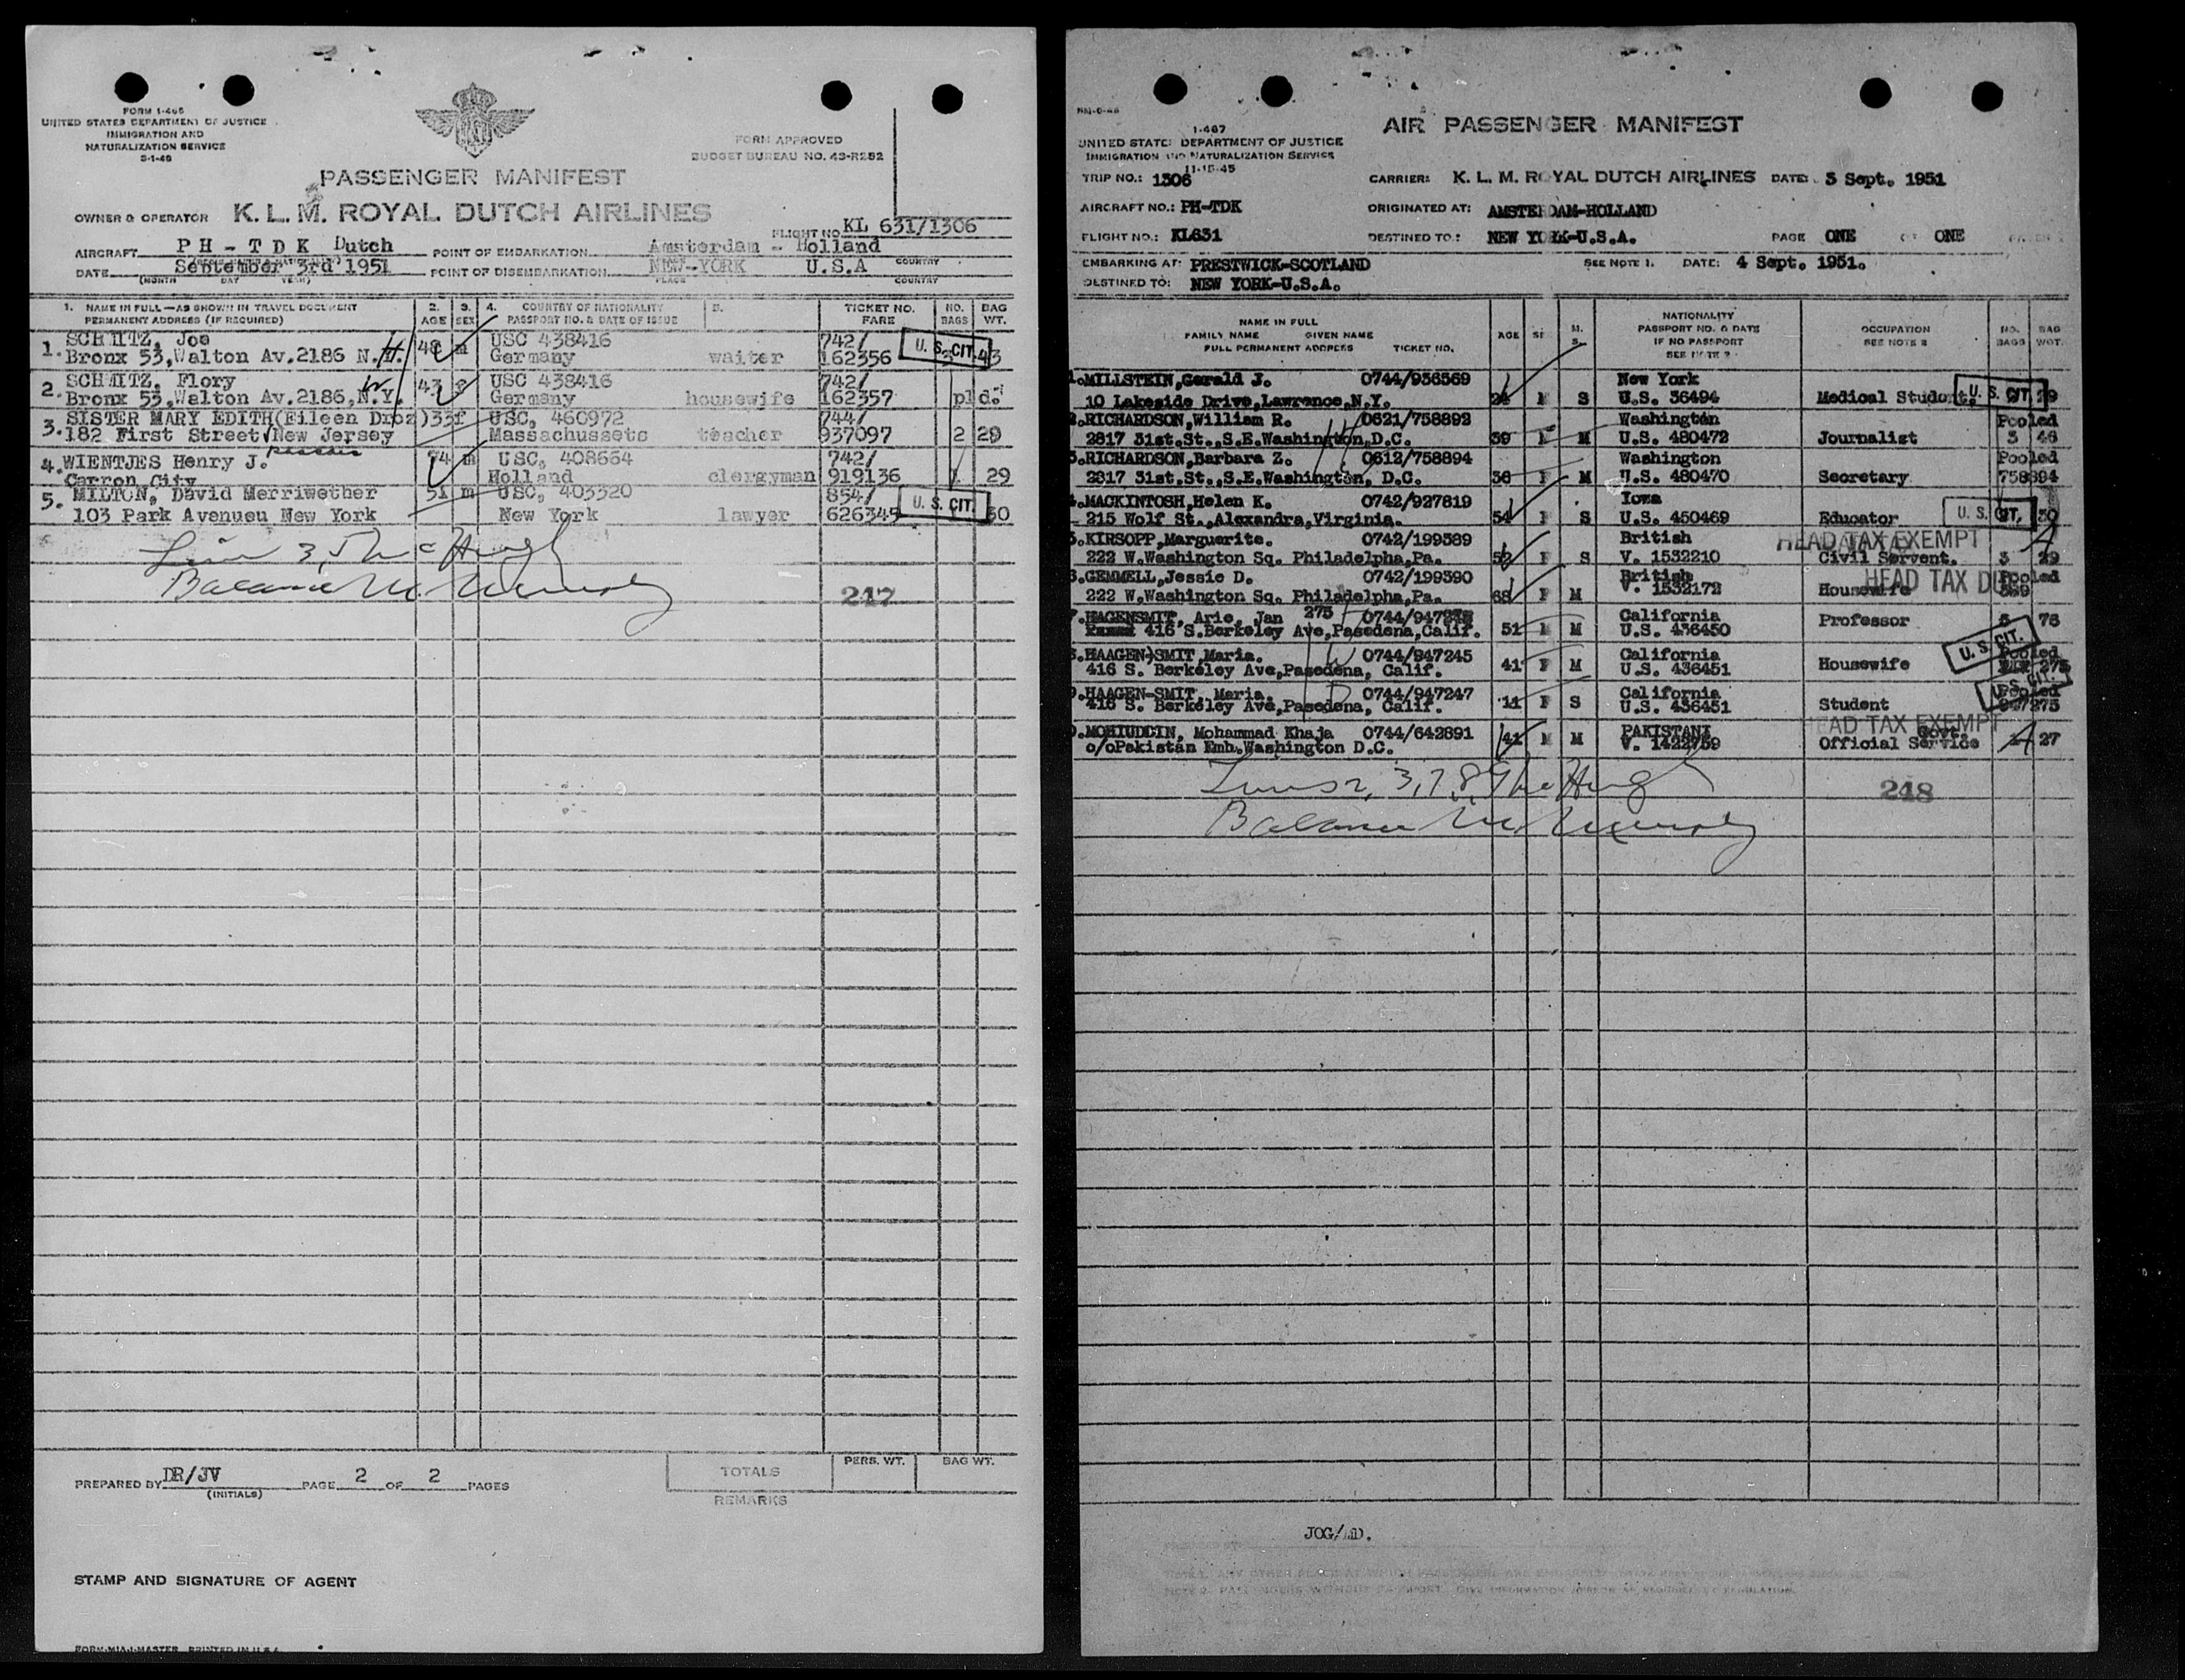 FORM I-466
UNITED STATES DEPARTMENT OF JUSTICE
IMMIGRATION AND
NATURALIZATION SERVICE
FORM APPROVED
BUDGET BUREAU NO. 43-R252
PASSENGER MANIFEST
OWNER & OPERATOR K. L. M. ROYAL DUTCH AIRLINES
FLIGHT NO. KL 631/1306
AIRCRAFT PH-TDK Dutch POINT OF EMBARKATION Amsterdam - Holland
DATE September 3rd 1951 POINT OF DISEMBARKATION NEW-YORK U.S.A
(MONTH DAY YEAR) PLACE COUNTRY
1. NAME IN FULL—AS SHOWN IN TRAVEL DOCUMENT 2. 3. 4. COUNTRY OF NATIONALITY 5. TICKET NO. NO. BAG
PERMANENT ADDRESS (IF REQUIRED) AGE SEX PASSPORT NO. & DATE OF ISSUE FARE BAGS WT.
SCHMITZ, Joe 48 m USC 438416 742/ U. S. CIT.
1. Bronx 53, Walton Av. 2186 Germany waiter 162356 43
SCHMITZ, Flory 43 f USC 438416 742/
2. Bronx 53, Walton Av. 2186, N.Y. Germany housewife 162357 pld.
SISTER MARY EDITH (Eileen Droz) 33 f USC, 460972 744/
3. 182 First Street New Jersey Massachussets teacher 937097 2 29
4. WIENTJES Henry J. 74 m USC, 408664 742/
Carron City Holland clergyman 919136 1 29
5. MILTON, David Merriwether 51 m USC, 403320 854/ U. S. CIT.
103 Park Avenueu New York New York lawyer 626345 30
217
PREPARED BY DR/JV PAGE 2 OF 2 PAGES
(INITIALS)
TOTALS PERS. WT. BAG WT.
REMARKS
STAMP AND SIGNATURE OF AGENT
AIR PASSENGER MANIFEST
I-467
UNITED STATES DEPARTMENT OF JUSTICE
IMMIGRATION AND NATURALIZATION SERVICE
11-15-45
TRIP NO.: 1306 CARRIER: K. L. M. ROYAL DUTCH AIRLINES DATE: 3 Sept. 1951
AIRCRAFT NO.: PH-TDK ORIGINATED AT: AMSTERDAM-HOLLAND
FLIGHT NO.: KL631 DESTINED TO: NEW YORK-U.S.A. PAGE ONE OF ONE
EMBARKING AT: PRESTWICK-SCOTLAND SEE NOTE 1. DATE: 4 Sept. 1951.
DESTINED TO: NEW YORK-U.S.A.
NAME IN FULL NATIONALITY
FAMILY NAME GIVEN NAME AGE M. PASSPORT NO. & DATE OCCUPATION NO. BAG
FULL PERMANENT ADDRESS TICKET NO. S. IF NO PASSPORT SEE NOTE 2 BAGS WGT.
1. MILLSTEIN, Gerald J. 0744/936569 New York
10 Lakeside Drive, Lawrence, N.Y. 24 M S U.S. 36494 Medical Student. U. S. CIT. 29
2. RICHARDSON, William R. 0621/758892 Washington Pooled
2817 31st. St., S.E. Washington, D.C. 39 M M U.S. 480472 Journalist 3 46
3. RICHARDSON, Barbara Z. 0612/758894 Washington Pooled
2817 31st, St., S.E. Washington, D.C. 36 F M U.S. 480470 Secretary 758894
4. MACKINTOSH, Helen K. 0742/927819 Iowa
215 Wolf St., Alexandra, Virginia. 54 F S U.S. 450469 Educator U. S. CIT. 30
5. KIRSOPP, Marguerite. 0742/199589 British HEAD TAX EXEMPT
222 W. Washington Sq. Philadelpha, Pa. 52 F S V. 1532210 Civil Servent. 3 29
6. GEMMELL, Jessie D. 0742/199590 British HEAD TAX Pooled
222 W. Washington Sq. Philadelpha, Pa. 68 F M V. 1532172 Housewife 589
7. HAGENSMIT, Arie, Jan 275 California
416 S. Berkeley Ave, Pasedena, Calif. 51 M M U.S. 436450 Professor 5 76
8. HAAGEN-SMIT, Maria. 0744/947245 California U. S. CIT. Pooled
416 S. Berkeley Ave, Pasedena, Calif. 41 F M U.S. 436451 Housewife 275
9. HAAGEN-SMIT, Maria. 0744/947247 California U. S. CIT. Pooled
416 S. Berkeley Ave, Pasedena, Calif. 11 F S U.S. 436451 Student 947275
MOHIUDDIN, Mohammad Khaja 0744/642891 PAKISTANI HEAD TAX EXEMPT Govt.
c/oPakistan Emb. Washington D.C. 41 M M V. 1422759 Official Service 27
248